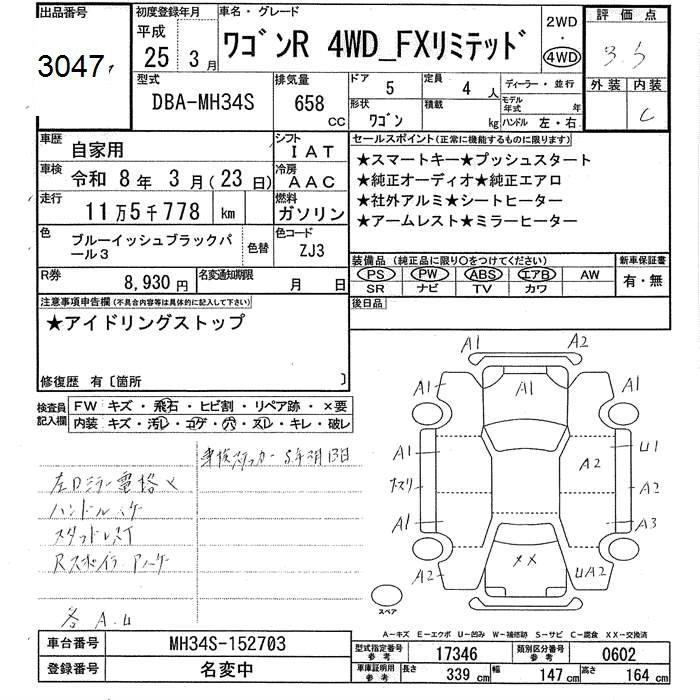 出品番号 初度登録年月 車名・グレード 2WD 評価点
3047 平成 25 3月 ワゴンR 4WD_FXリミテッド ・ 4WD 3.5
外装 内装
C
型式 DBA-MH34S 排気量 658 CC ドア 5 定員 4 人 ディーラー・並行
形状 ワゴン 積載 kg モデル年式 年
ハンドル 左・右
車歴 自家用 シフト IAT セールスポイント(正常に機能するものに限ります)
★スマートキー★プッシュスタート
車検 令和 8年 3月(23日) 冷房 AAC ★純正オーディオ★純正エアロ
走行 11万5千778 km 燃料 ガソリン ★社外アルミ★シートヒーター
★アームレスト★ミラーヒーター
色 ブルーイッシュブラックパール3 色替 色コード ZJ3
装備品(純正品に限り○をつけてください) 新車保証書
PS PW ABS エアB AW 有・無
SR ナビ TV カワ
R券 8,930円 名変通知期限 月 日
後日品
注意事項申告欄(不具合内容等は具体的に記入して下さい)
★アイドリングストップ
修復歴 有〔箇所 〕
検査員記入欄 FW キズ・飛石・ヒビ割・リペア跡・×要
内装 キズ・汚レ・コゲ・穴・スレ・キレ・破レ
車検ステッカー 5年3月13日
左Dミラー電格×
ハンドルスケ
スタッドレスT
各A.U
A1 A2
A1 A1 A1
A1 A2 U1
A2
A1 A3
A2 XX UA2
スペア
A-キズ E-エクボ U-凹み W-補修跡 S-サビ C-腐食 XX-交換済
車台番号 MH34S-152703 型式指定番号 参考 17346 類別区分番号 参考 0602
登録番号 名変中 車庫証明用 参考 長さ 339 cm 幅 147 cm 高さ 164 cm